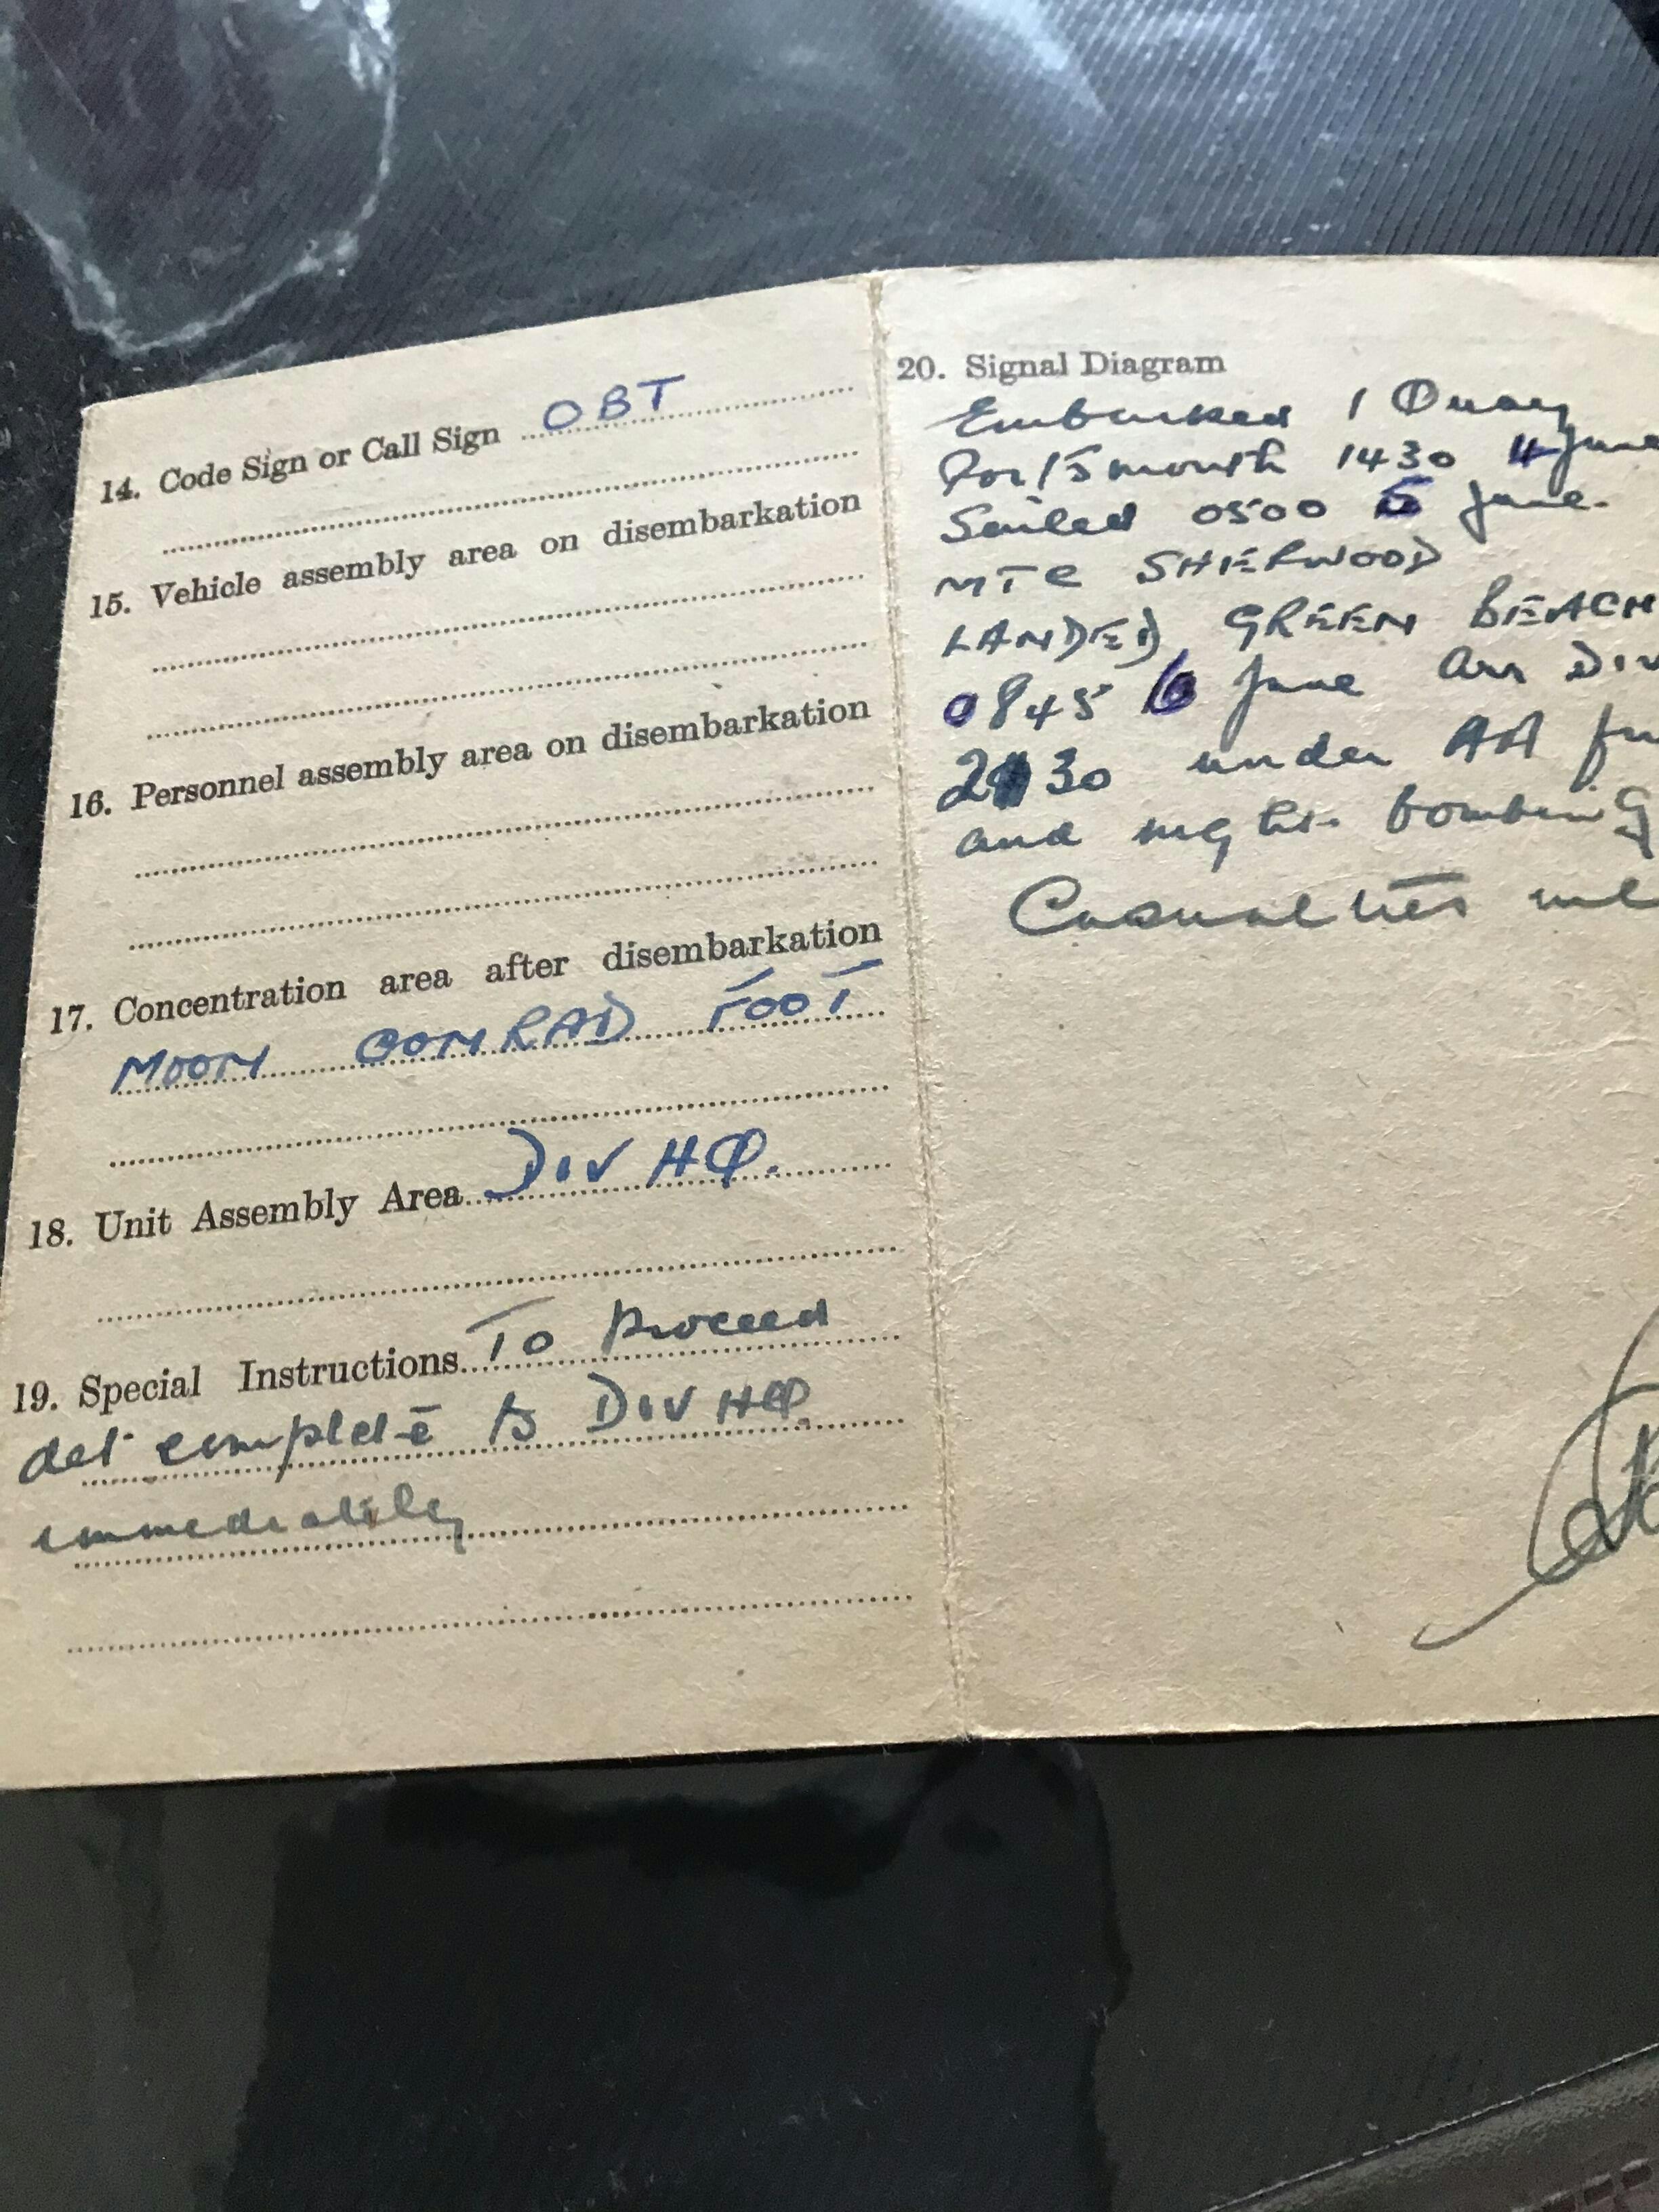 14. Code Sign or Call Sign OBT
15. Vehicle assembly area on disembarkation
16. Personnel assembly area on disembarkation
17. Concentration area after disembarkation
MOON COMRAD FOOT
18. Unit Assembly Area DIV HQ.
19. Special Instructions To Proceed
det complete to DIV HQ.
immediately
20. Signal Diagram
Embarked 1 Quay
Portsmouth 1430 4 June
Sailed 0500 5 June.
MTC SHERWOOD
LANDED GREEN BEACH
0845 6 June Arr DIV
30 under AA
and night bombing
Casualties